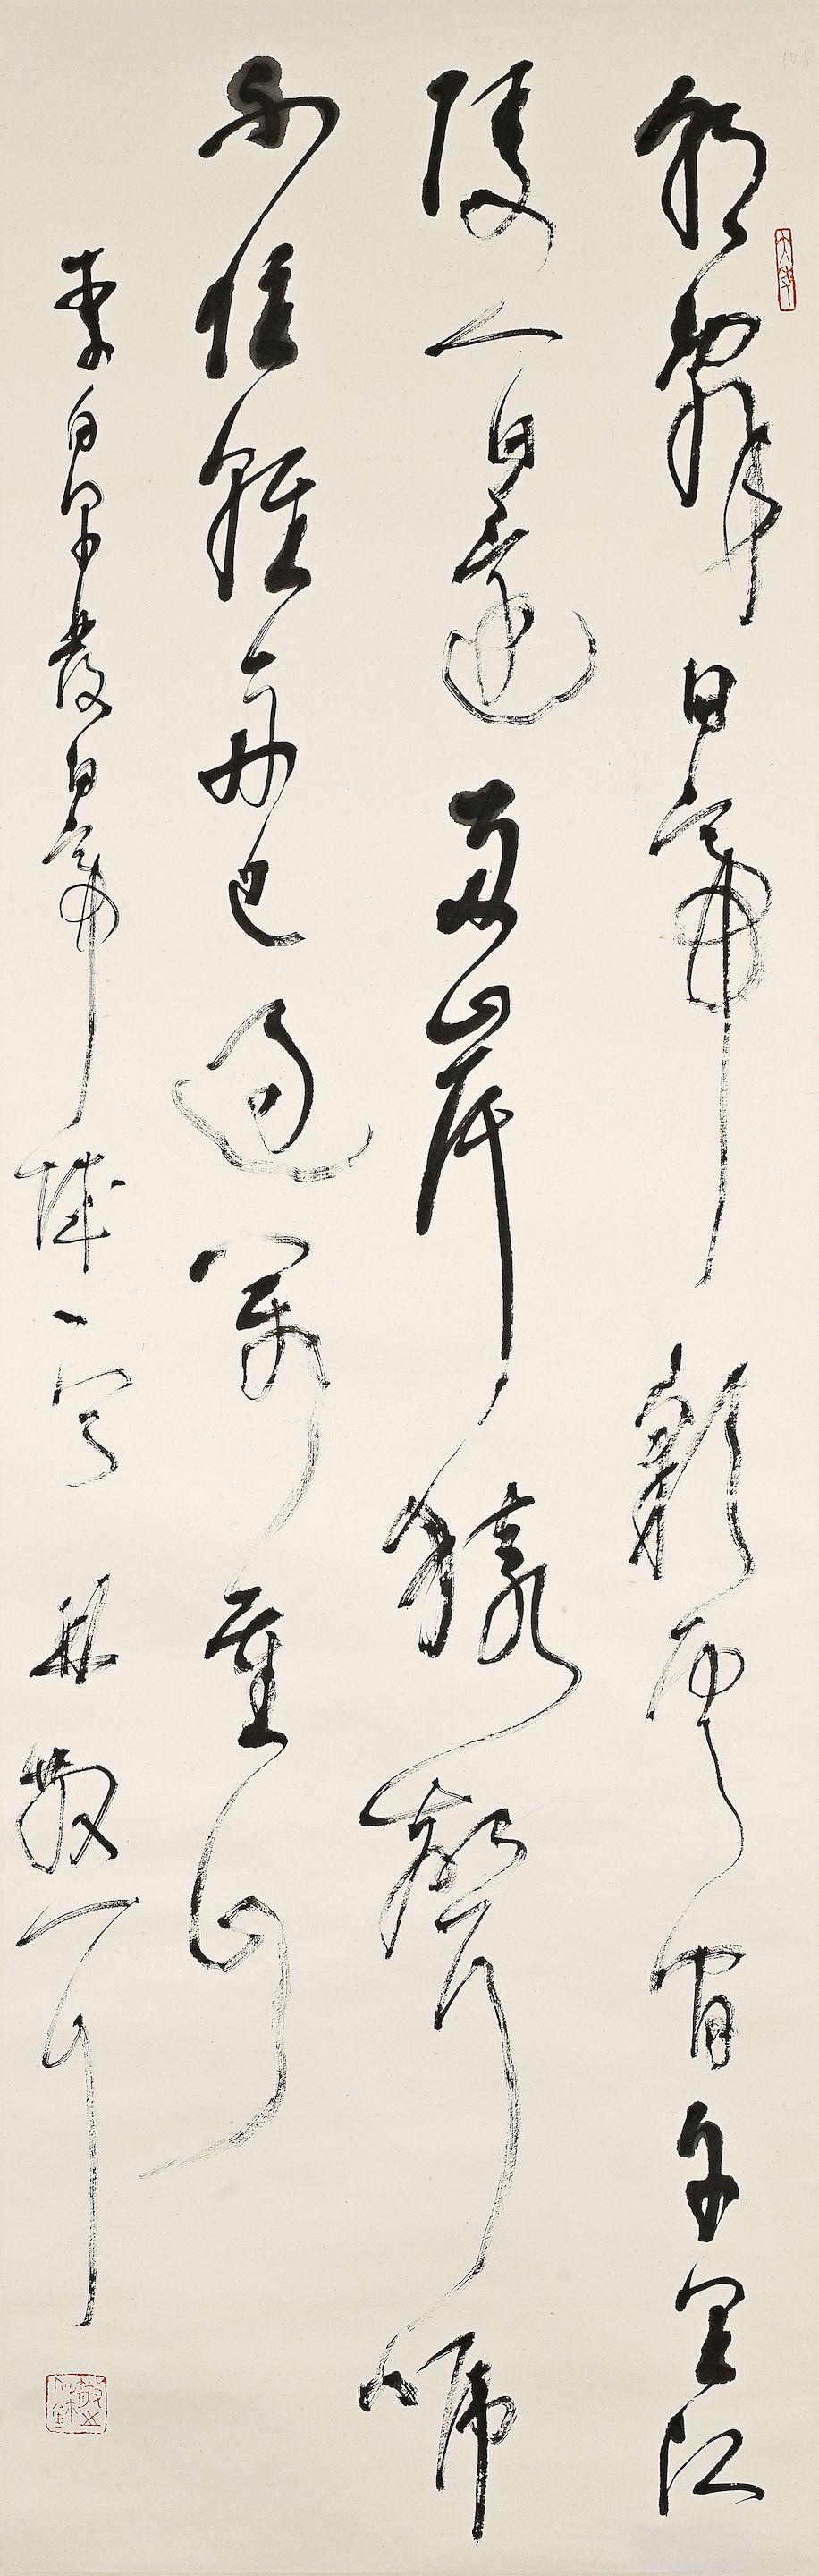 朝辭白帝彩雲間千里江
陵一日還兩岸猿聲啼
不住輕舟已過萬重山
李白早發白帝城一首 林散耳